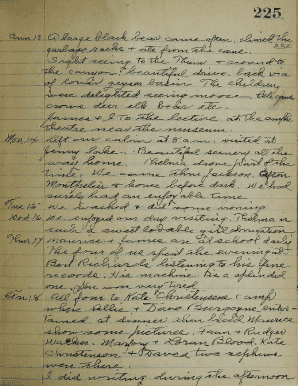 225
A large black bear came often, climbed the
garbage racks & ate from the cans.
Sight seeing to the Thum & around to
the canyon - beautiful drive back via
geyser basin. The children
were delighted seeing moose
crows deer elk bears etc
& I to the lecture at the amphi
theatre near the museum.
Mon 14 Left our cabin at 8 a.m. visited at
Jenny Lake. Beautiful scenery all the
way home. Thelma drove part of the
time. We came thru Jackson, Afton
Montpelier & home before dark. We had
surely had an enjoyable time.
Tue 15 We washed & did some ironing
Wed 16 We enjoyed our day visiting. Thelma is
such a sweet lovable girl.
Thur 17 Maurice & at school daily
The four of us spent the evening at
Bert Richards listening to his fine
records. His machine is a splendid
one. very tired
18 All four to Kate Christensen camp
where & Dave enter-
tained at dinner. Maurice
show some pictures. Fern & Rudger
Walker. Mary & Loran Blood, Kate
Christensen & Dave's two nephews
were there.
I did writing during the afternoon